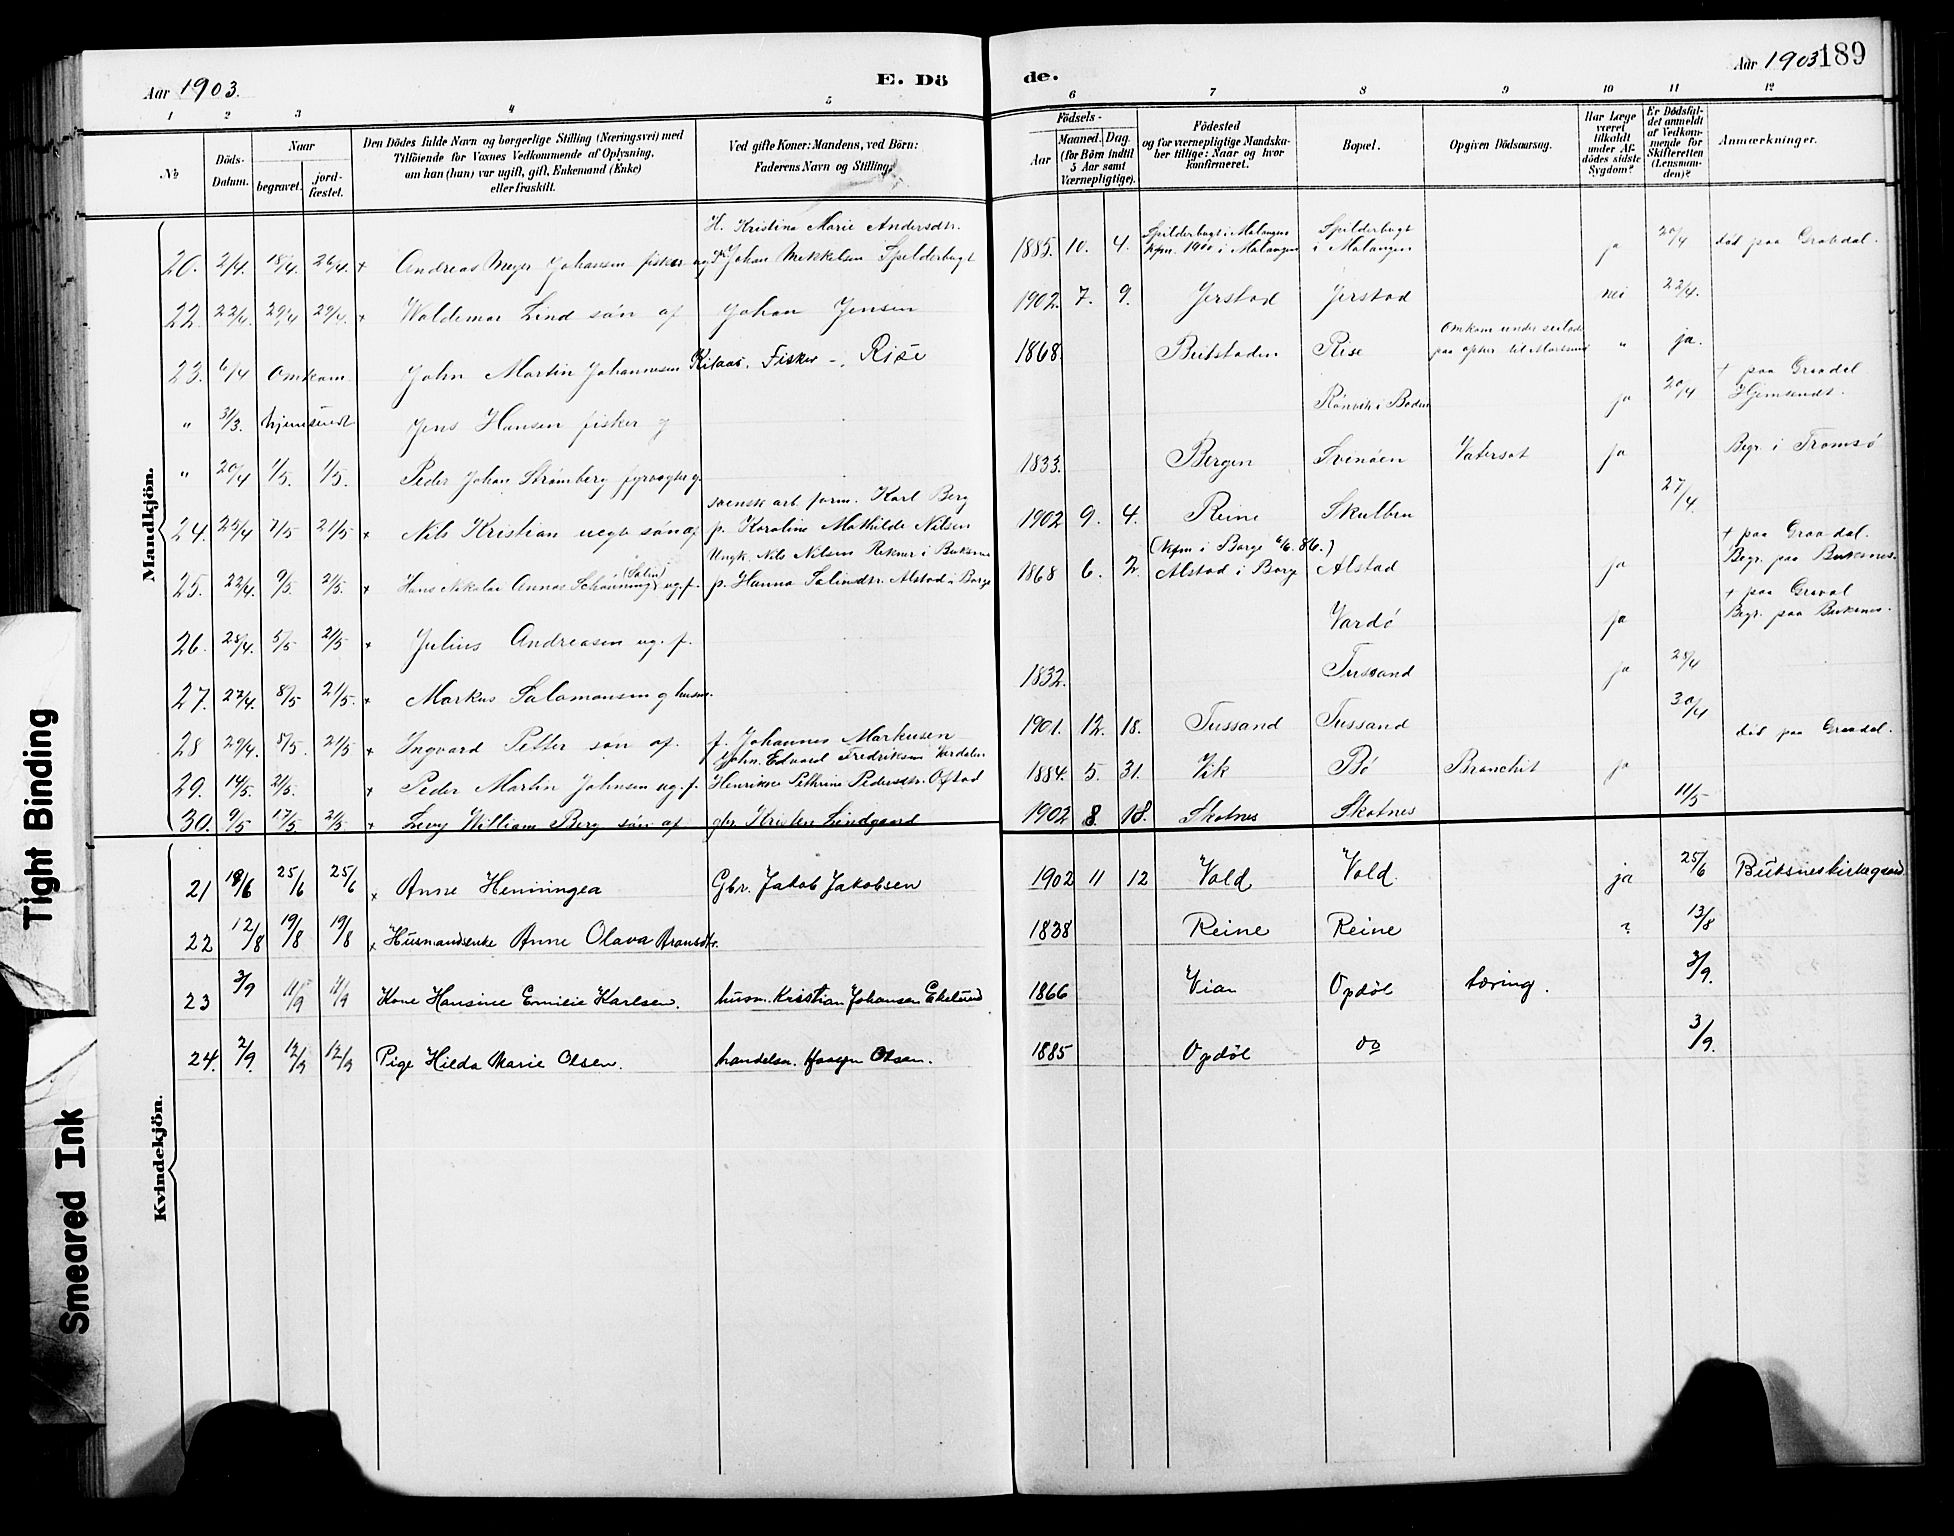 Aar 1903.
E. Dö
de.
Aar 1903 189
1 2 3 4 5 6 7 8 9 10 11 12
№
Döds-Datum.
Naar
begravet.
jord-fæstet.
Den Dödes fulde Navn og borgerlige Stilling (Næringsvei) med
Tilföiende for Voxnes Vedkommende af Oplysning,
om han (hun) var ugift, gift, Enkemand (Enke)
eller fraskilt.
Ved gifte Koner: Mandens, ved Börn:
Faderens Navn og Stilling.
Födsels-
Aar
Maaned. Dag.
(for Börn indtil
5 Aar samt
Værnepligtige).
Födested
og for værnepligtige Mandska-
ber tillige: Naar og hvor
konfirmeret.
Bopæl.
Opgiven Dödsaarsag.
Har Læge
været
tilkaldt
under Af-
dödes sidste
Sygdom?
Er Dödsfal-
det anmeldt
af Vedkom-
mende for
Skifteretten
(Lensman-
den)?
Anmærkninger.
Mandkjön.
H. Kristina Marie Andersdtr.
20. 2/4. 18/4. 26/4. + Andreas Meyer Johansen fisker ug Johan Mekkelsen Spilderbugt 1885. 10. 4. Spilderbugt i Malangen kfm. 1900 i Malangen Spilderbugt i Malangen ja 20/4 död paa Gravdal.
22. 22/4. 29/4 29/4. + Waldemar Lind søn af Johan Jensen 1902. 7. 9. Jerstad Jerstad nei 22/4.
23. 6/4 Omkom John Martin Johannesen Fisker -. Rise 1868. Beitstaden Rise Omkom under seilads paa " ja.
" 3/3. hjemsendt Jens Hansen fisker g Rønvik i Bodin ja 20/4 + paa Gravdal Hjemsendt.
" 20/4 1/5. 1/5. Peder Johan Strømberg fyrvogter g. 1833. Bergen Svinøen Vatersot ja Begr. i Tromsø
svensk arb. form. Karl Berg
24. 25/4 7/5 21/5 + Nils Kristian uegte søn af p. Karoline Mathilde Nilsen 1902 9. 4. Reine Skulbru 27/4.
Ungk. Nils Nilsen Rekner i Buksnes
25. 22/4. 9/5. 21/5. + Hans Nikolai Annas Schönning (Salin) ug. f. p. Hanna Salinsdtr. Alstad i Borge 1868 6. 2. (Kfm i Borge 6/6. 86.) Alstad i Borge Alstad ja + paa Gravdal. Begr. paa Buksnes.
26. 28/4. 5/5 21/5 + Julius Andreasen ug. f. Vardø ja + paa Graval Begr. paa Buksnes.
27. 27/4. 8/5 21/5. + Markus Salomonsen g husm. 1832. Tussand ja 28/4
28 29/4. 8/5. 21/5 + Ingvard Petter søn af f. Johannes Markusen 1901. 12. 18. Tussand Tussand 30/4
John. Edvard Fredriksen Værdalen
29. 14/5. 21/5. + Peder Martin Johnsen ug. f. Henrikæ Pethrine Pedersdtr. Ofstad 1884. 5. 31. Vik Bø Bronchit ja död paa Gravdal.
30. 9/5 17/5 21/5. + Levy William Berg søn af gbr. Kristen Lindgaard 1902 8. 18. Skotnes Skotnes 11/5
Kvindekjön.
21 18/6 25/6 25/6 × Anne Henningea Gbr. Jakob Jakobsen 1902 11 12 Vold Vold. ja 25/6 Buksneskirkegaard
22 12/8 19/8 19/8 × Husmandsenke Anne Olava Aronsdtr. 1838 Reine Reine ? 13/8
23 3/9 11/9 11/9 Kone Hansine Emilie Karlsen. husm. Kristian Johansen Ekelund 1866 Vian Opdøl tæring. 3/9.
24. 2/9. 12/9 12/9 Pige Hilda Marie Olsen. handelsm. Haagen Olsen. 1885 Opdøl do 3/9.
Tight Binding
Smeared Ink